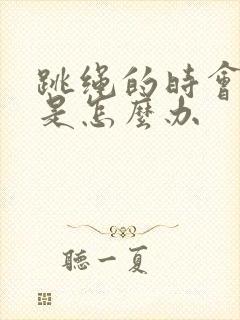 跳绳的時會
是怎麼办
聽一夏